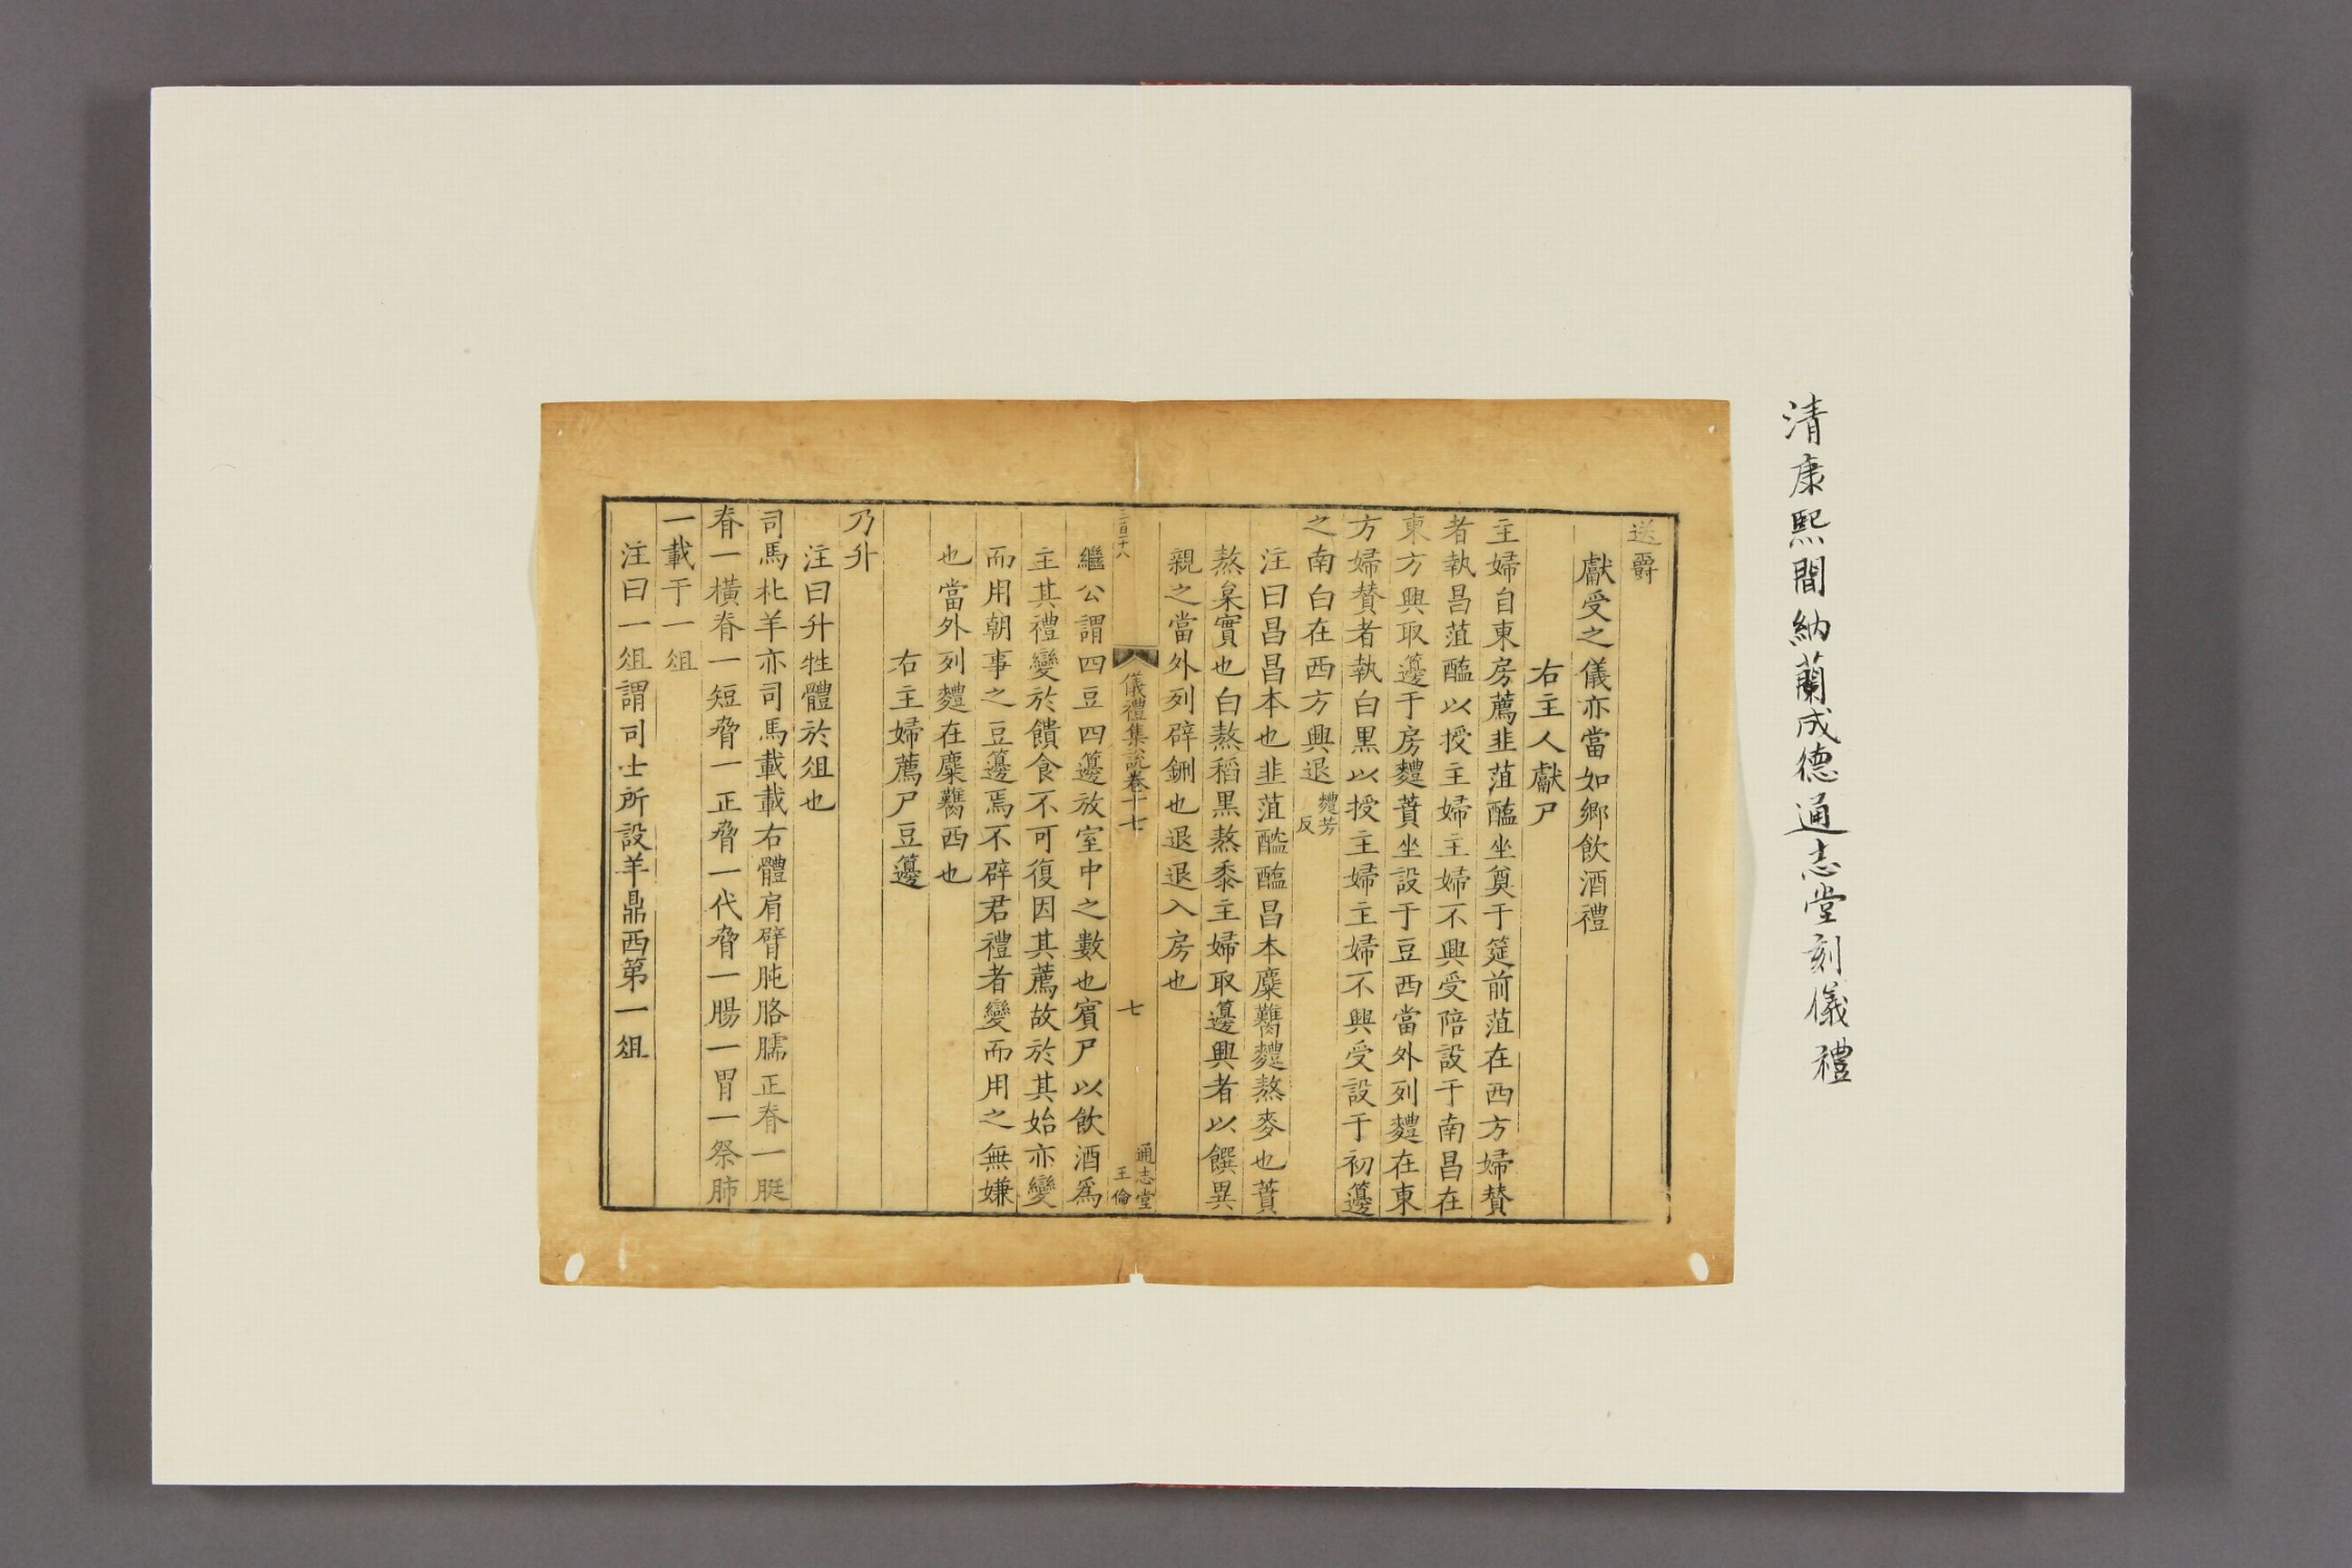 清康熙間納蘭成德通志堂刻儀禮
送爵
獻受之儀亦當如鄉飲酒禮
右主人獻尸
主婦自東房薦韭菹醢坐奠于筵前菹在西方婦贊
者執昌菹醢以授主婦主婦不興受陪設于南昌在
東方興取籩于房麷蕡坐設于豆西當外列麷在東
方婦贊者執白黑以授主婦主婦不興受設于初籩
之南白在西方興退麷芳反
注曰昌昌本也韭菹醓醢昌本麋臡麷熬麥也蕡
熬枲實也白熬稻黑熬黍主婦取籩興者以饌異
親之當外列辟鉶也退退入房也
三百二十八
儀禮集說卷十七
七
通志堂
王倫
繼公謂四豆四籩放室中之數也賓尸以飲酒爲
主其禮變於饋食不可復因其薦故於其始亦變
而用朝事之豆籩焉不辟君禮者變而用之無嫌
也當外列麷在麋臡西也
右主婦薦尸豆籩
乃升
注曰升牲體於俎也
司馬朼羊亦司馬載載右體肩臂肫胳臑正脊一脡
脊一橫脊一短脅一正脅一代脅一腸一胃一祭肺
一載于一俎
注曰一俎謂司士所設羊鼎西第一俎